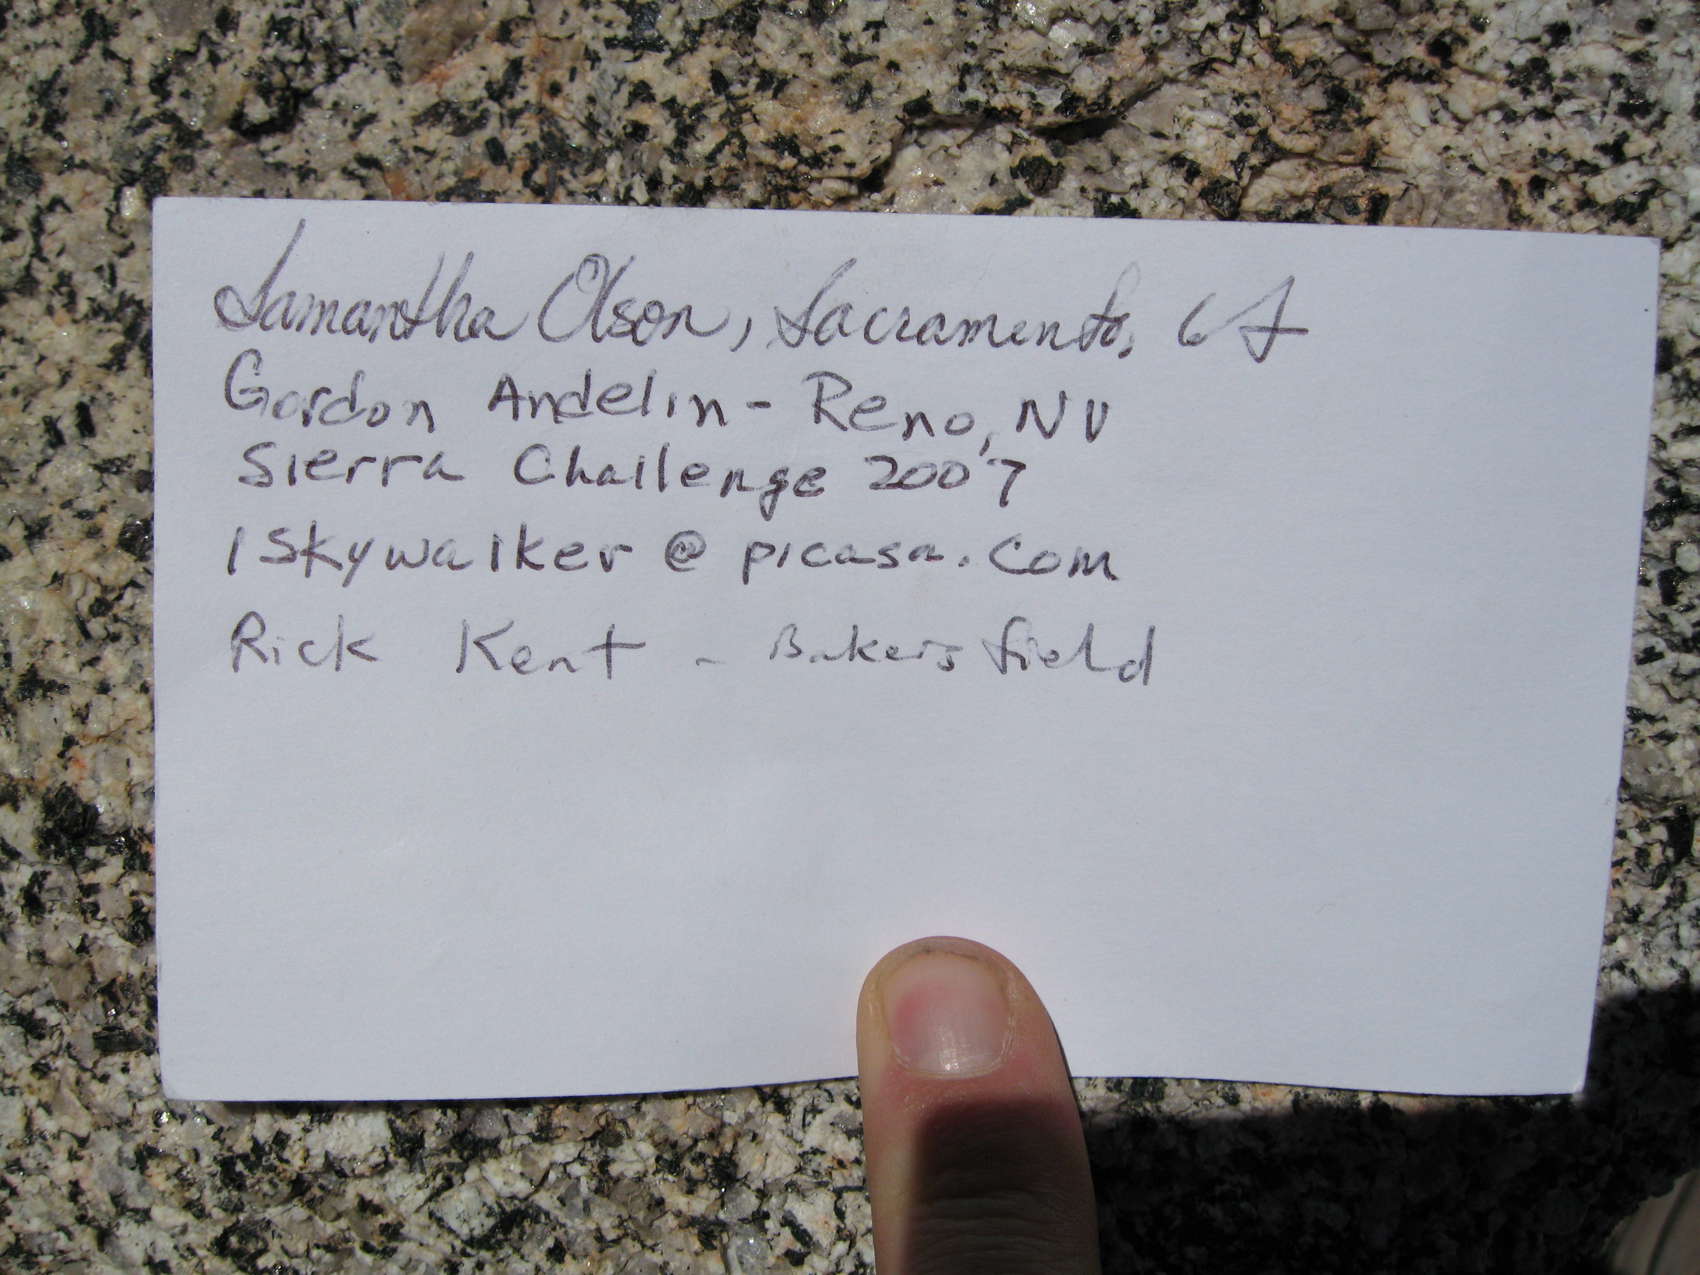 Samantha Olson, Sacramento, CA
Gordon Andelin - Reno, NV
Sierra Challenge 2007
1skywalker@picasa.com
Rick Kent - Bakersfield